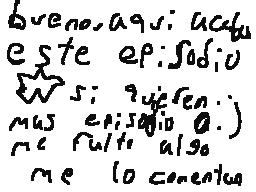 buenos aqui acaba
este episodio
si quieren
mas episodio o
me falto algo
me lo comentan